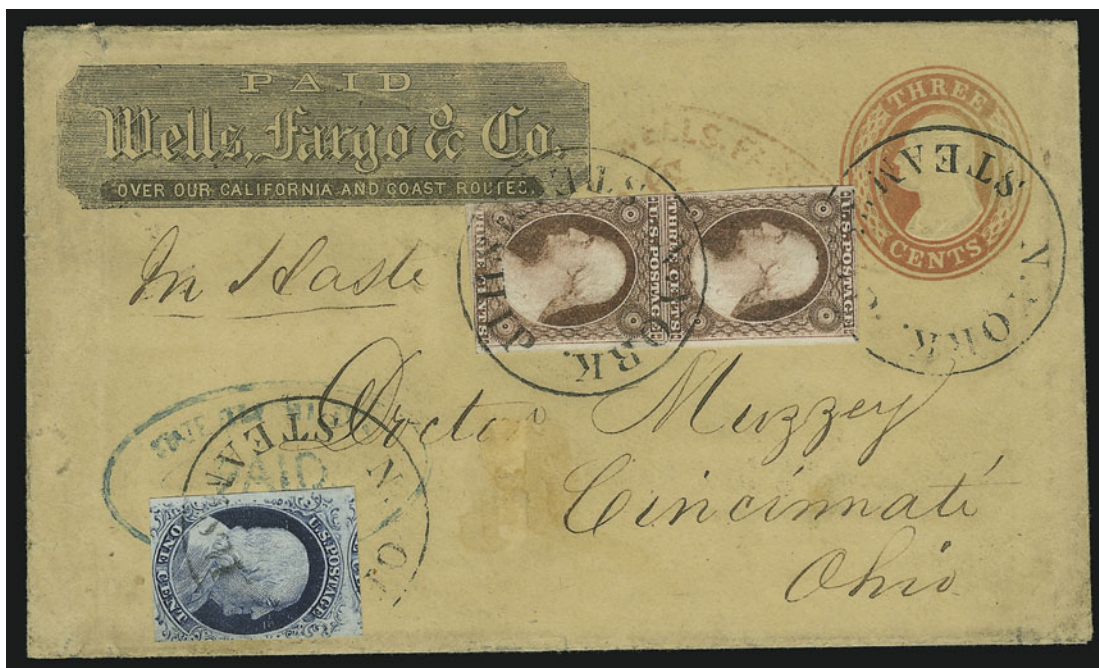 PAID
Wells, Fargo & Co.
OVER OUR CALIFORNIA AND COAST ROUTES.
THREE
CENTS
WELLS, FA
N. YORK. STEAMSHIP
N. YORK. STEAM
U.S. POSTAGE
THREE CENTS
U.S. POSTAGE
THREE CENTS
In Haste
Doctor Muzzey
Cincinnati
Ohio
PAID
N. YO STEAM
U.S. POSTAGE
ONE CENT